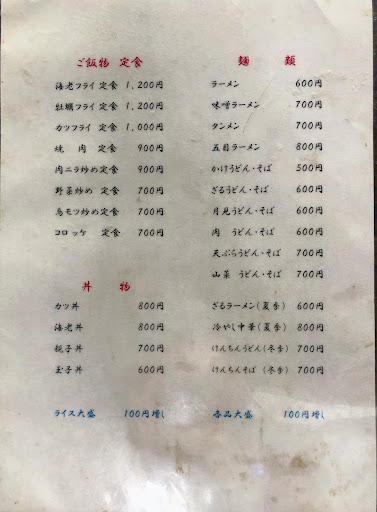 ご飯物 定食
海老フライ 定食 1,200円
牡蠣フライ 定食 1,200円
カツフライ 定食 1,000円
焼 肉 定食 900円
肉ニラ炒め 定食 900円
野菜炒め 定食 700円
鳥モツ炒め定食 700円
コロッケ 定食 700円
丼 物
カツ丼 800円
海老丼 800円
親子丼 700円
玉子丼 600円
ライス大盛 100円増し
麺 類
ラーメン 600円
味噌ラーメン 700円
タンメン 700円
五目ラーメン 800円
かけうどん・そば 500円
ざるうどん・そば 600円
月見うどん・そば 600円
肉 うどん・そば 600円
天ぷらうどん・そば 700円
山菜 うどん・そば 700円
ざるラーメン(夏季) 600円
冷やし中華(夏季) 800円
けんちんうどん(冬季) 700円
けんちんそば (冬季) 700円
各品大盛 100円増し